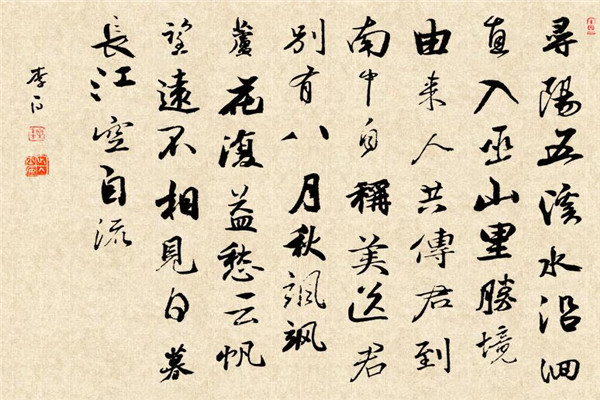 尋陽五溪水沿洄
直入巫山里勝境
由来人共傳君到
南中自稱美送君
別有八月秋颯颯
蘆花復益愁云帆
望遠不相見日暮
長江空自流
李白